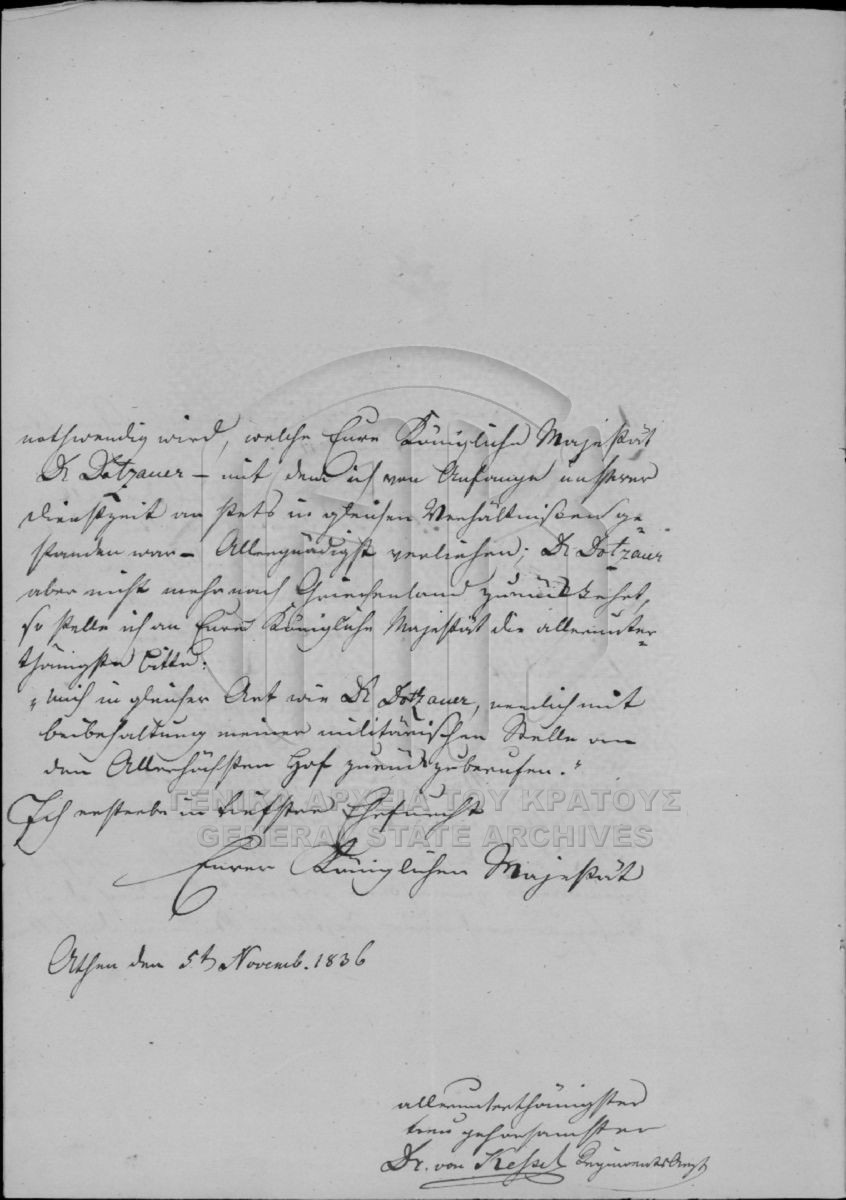 nothwendig wird, welche Eure Königliche Majestät
Dr Dotzauer – mit dem ich von Anfange unserer
Dienstzeit an stets in gleichen Verhältnißen ge-
standen war – Allergnädigst verliehen; Dr Dotzauer
aber nicht mehr nach Griechenland zurückkehrt,
so stelle ich an Eure Königliche Majestät die allerunter-
thänigste Bitte:
„mich in gleicher Art wie Dr Dotzauer, nemlich mit
Beibehaltung meiner militärischen Stelle an
den Allerhöchsten Hof zurückzuberufen.“
Ich ersterbe in tiefster Ehrfurcht
Eurer Königlichen Majestät
Athen den 5t Novemb. 1836
allerunterthänigster
treu gehorsamster
Dr. von Kessel Regimentsarzt
ΓΕΝΙΚΑ ΑΡΧΕΙΑ ΤΟΥ ΚΡΑΤΟΥΣ
GENERAL STATE ARCHIVES